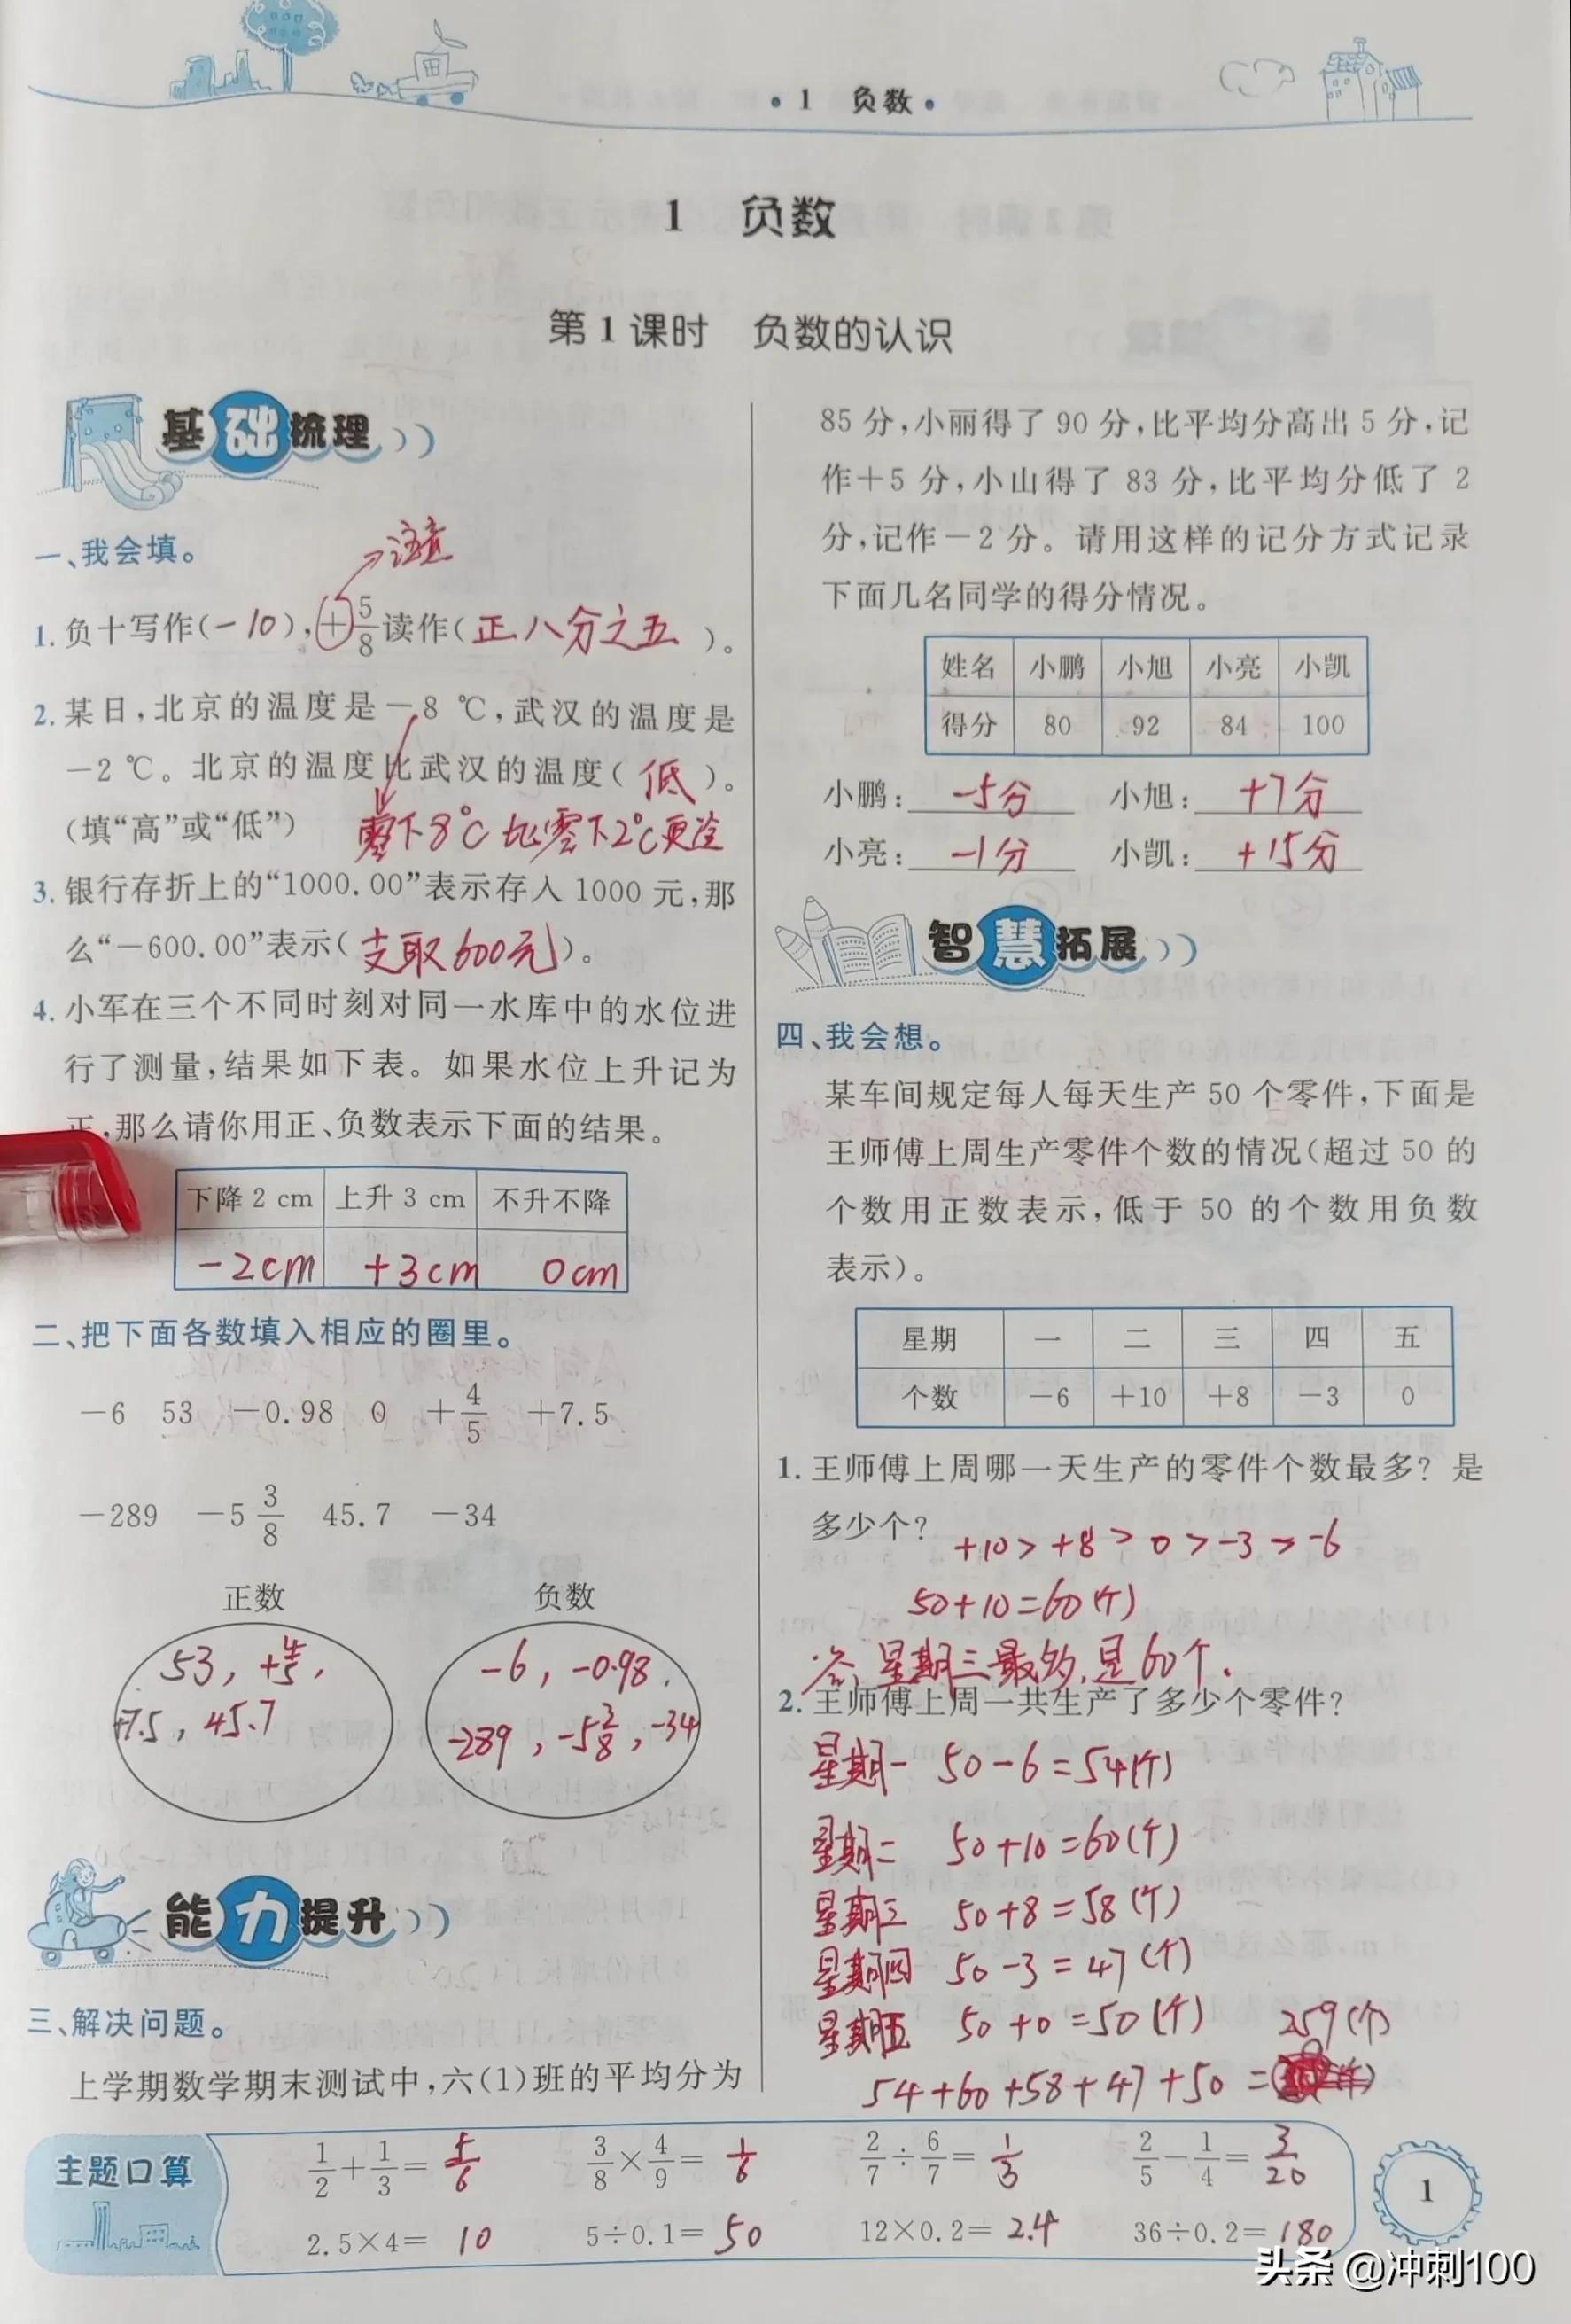 • 1 负数 •
1 负数
第1课时 负数的认识
基础梳理
一、我会填。
注意
1. 负十写作(-10),+5/8读作(正八分之五)。
2. 某日,北京的温度是-8 ℃,武汉的温度是
-2 ℃。北京的温度比武汉的温度(低)。
(填“高”或“低”) 零下8℃比零下2℃更冷
3. 银行存折上的“1000.00”表示存入1000元,那
么“-600.00”表示(支取600元)。
4. 小军在三个不同时刻对同一水库中的水位进
行了测量,结果如下表。如果水位上升记为
正,那么请你用正、负数表示下面的结果。
下降2 cm 上升3 cm 不升不降
-2cm +3cm 0cm
二、把下面各数填入相应的圈里。
-6 53 -0.98 0 +4/5 +7.5
-289 -5 3/8 45.7 -34
正数 负数
53, +4/5, -6, -0.98,
+7.5, 45.7 -289, -5 3/8, -34
能力提升
三、解决问题。
上学期数学期末测试中,六(1)班的平均分为
85分,小丽得了90分,比平均分高出5分,记
作+5分,小山得了83分,比平均分低了2
分,记作-2分。请用这样的记分方式记录
下面几名同学的得分情况。
姓名 小鹏 小旭 小亮 小凯
得分 80 92 84 100
小鹏: -5分 小旭: +7分
小亮: -1分 小凯: +15分
智慧拓展
四、我会想。
某车间规定每人每天生产50个零件,下面是
王师傅上周生产零件个数的情况(超过50的
个数用正数表示,低于50的个数用负数
表示)。
星期 一 二 三 四 五
个数 -6 +10 +8 -3 0
1. 王师傅上周哪一天生产的零件个数最多?是
多少个? +10>+8>0>-3>-6
50+10=60(个)
答:星期三最多,是60个.
2. 王师傅上周一共生产了多少个零件?
星期一 50-6=54(个)
星期二 50+10=60(个)
星期三 50+8=58(个)
星期四 50-3=47(个)
星期五 50+0=50(个) 259(个)
54+60+58+47+50=
主题口算
1/2+1/3=5/6 3/8×4/9=1/6 2/7÷6/7=1/3 2/5-1/4=3/20
2.5×4=10 5÷0.1=50 12×0.2=2.4 36÷0.2=180
1
头条 @冲刺100